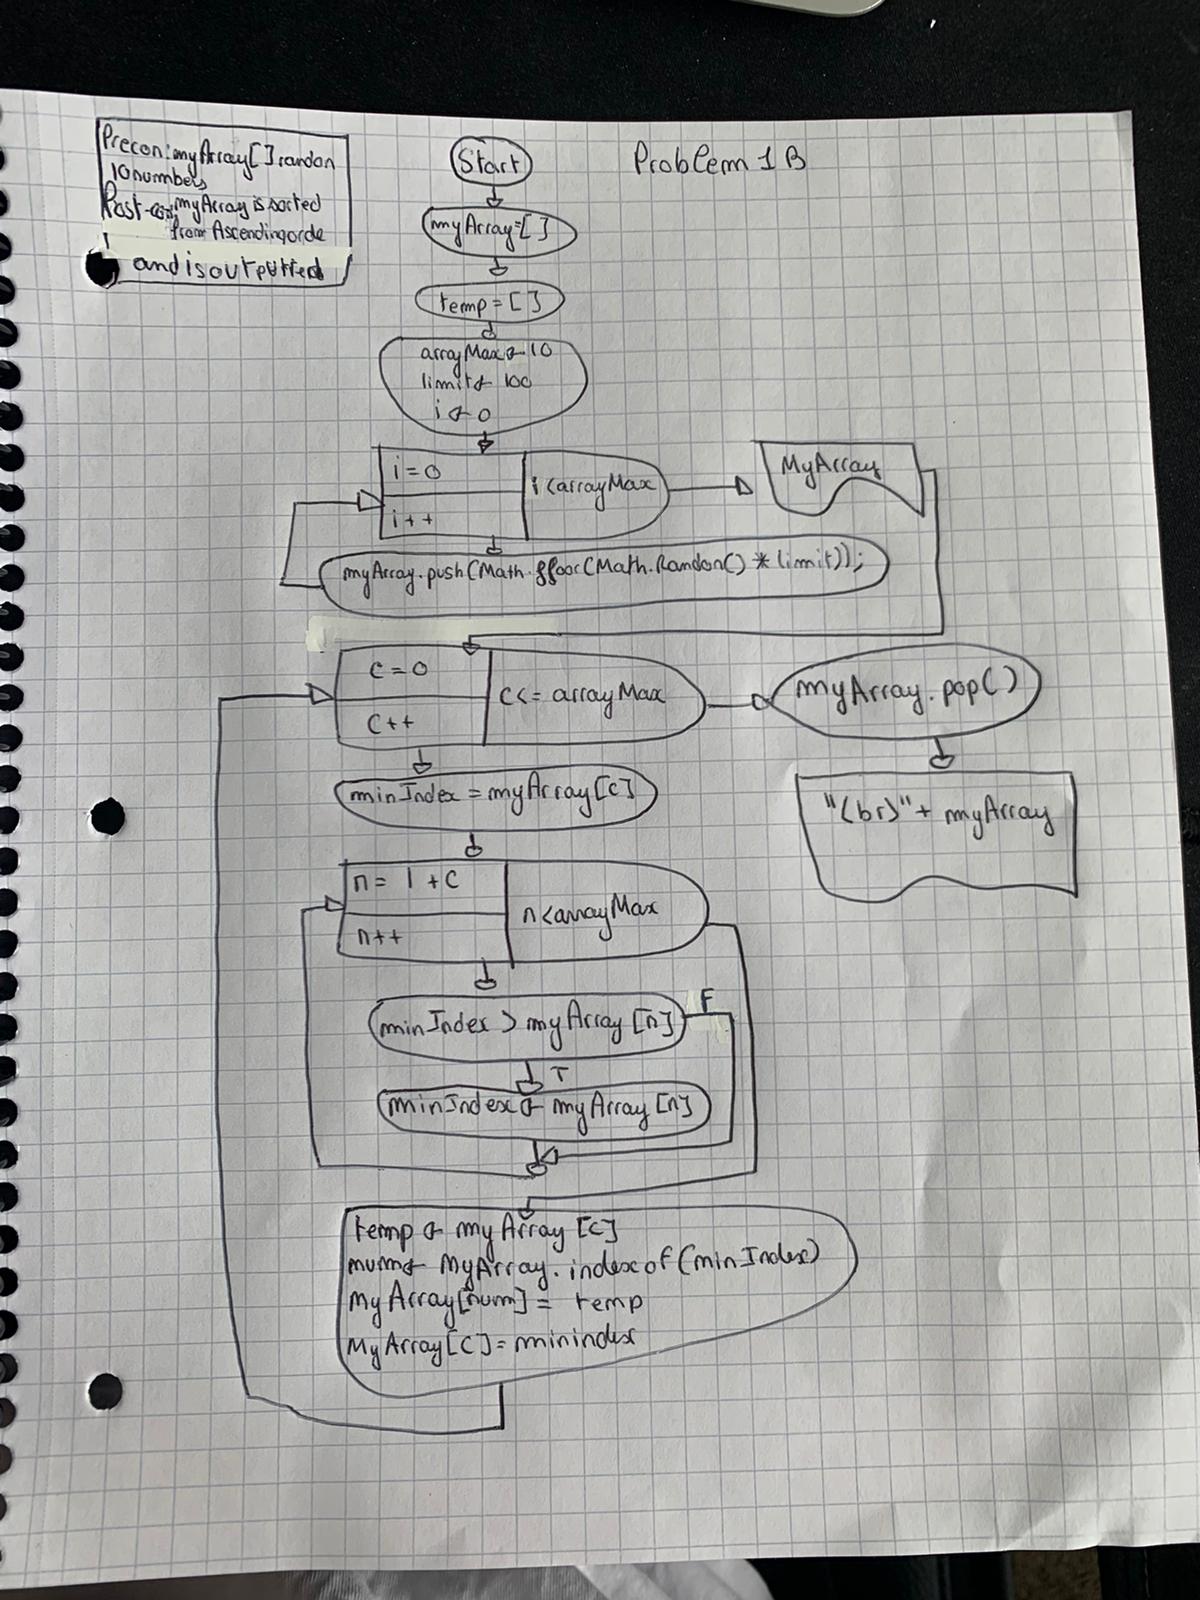 Precon: myArray[] randon
10 numbers
Post-con: myArray is sorted
from Ascending orde
and is outputted
Problem 1B
Start
myArray=[]
temp=[]
arrayMax ← 10
limit ← 100
i ← 0
i=0
i++
i<arrayMax
MyArray
myArray.push(Math.floor(Math.Random() * limit));
c=0
c++
c<= arrayMax
myArray.pop()
minIndex = myArray[c]
"<br>" + myArray
n= 1+c
n++
n<arrayMax
minIndex > myArray[n]
F
T
minIndex ← myArray[n]
temp ← myArray[c]
num ← MyArray.indexof(minIndex)
MyArray[num] = temp
MyArray[c] = minindex